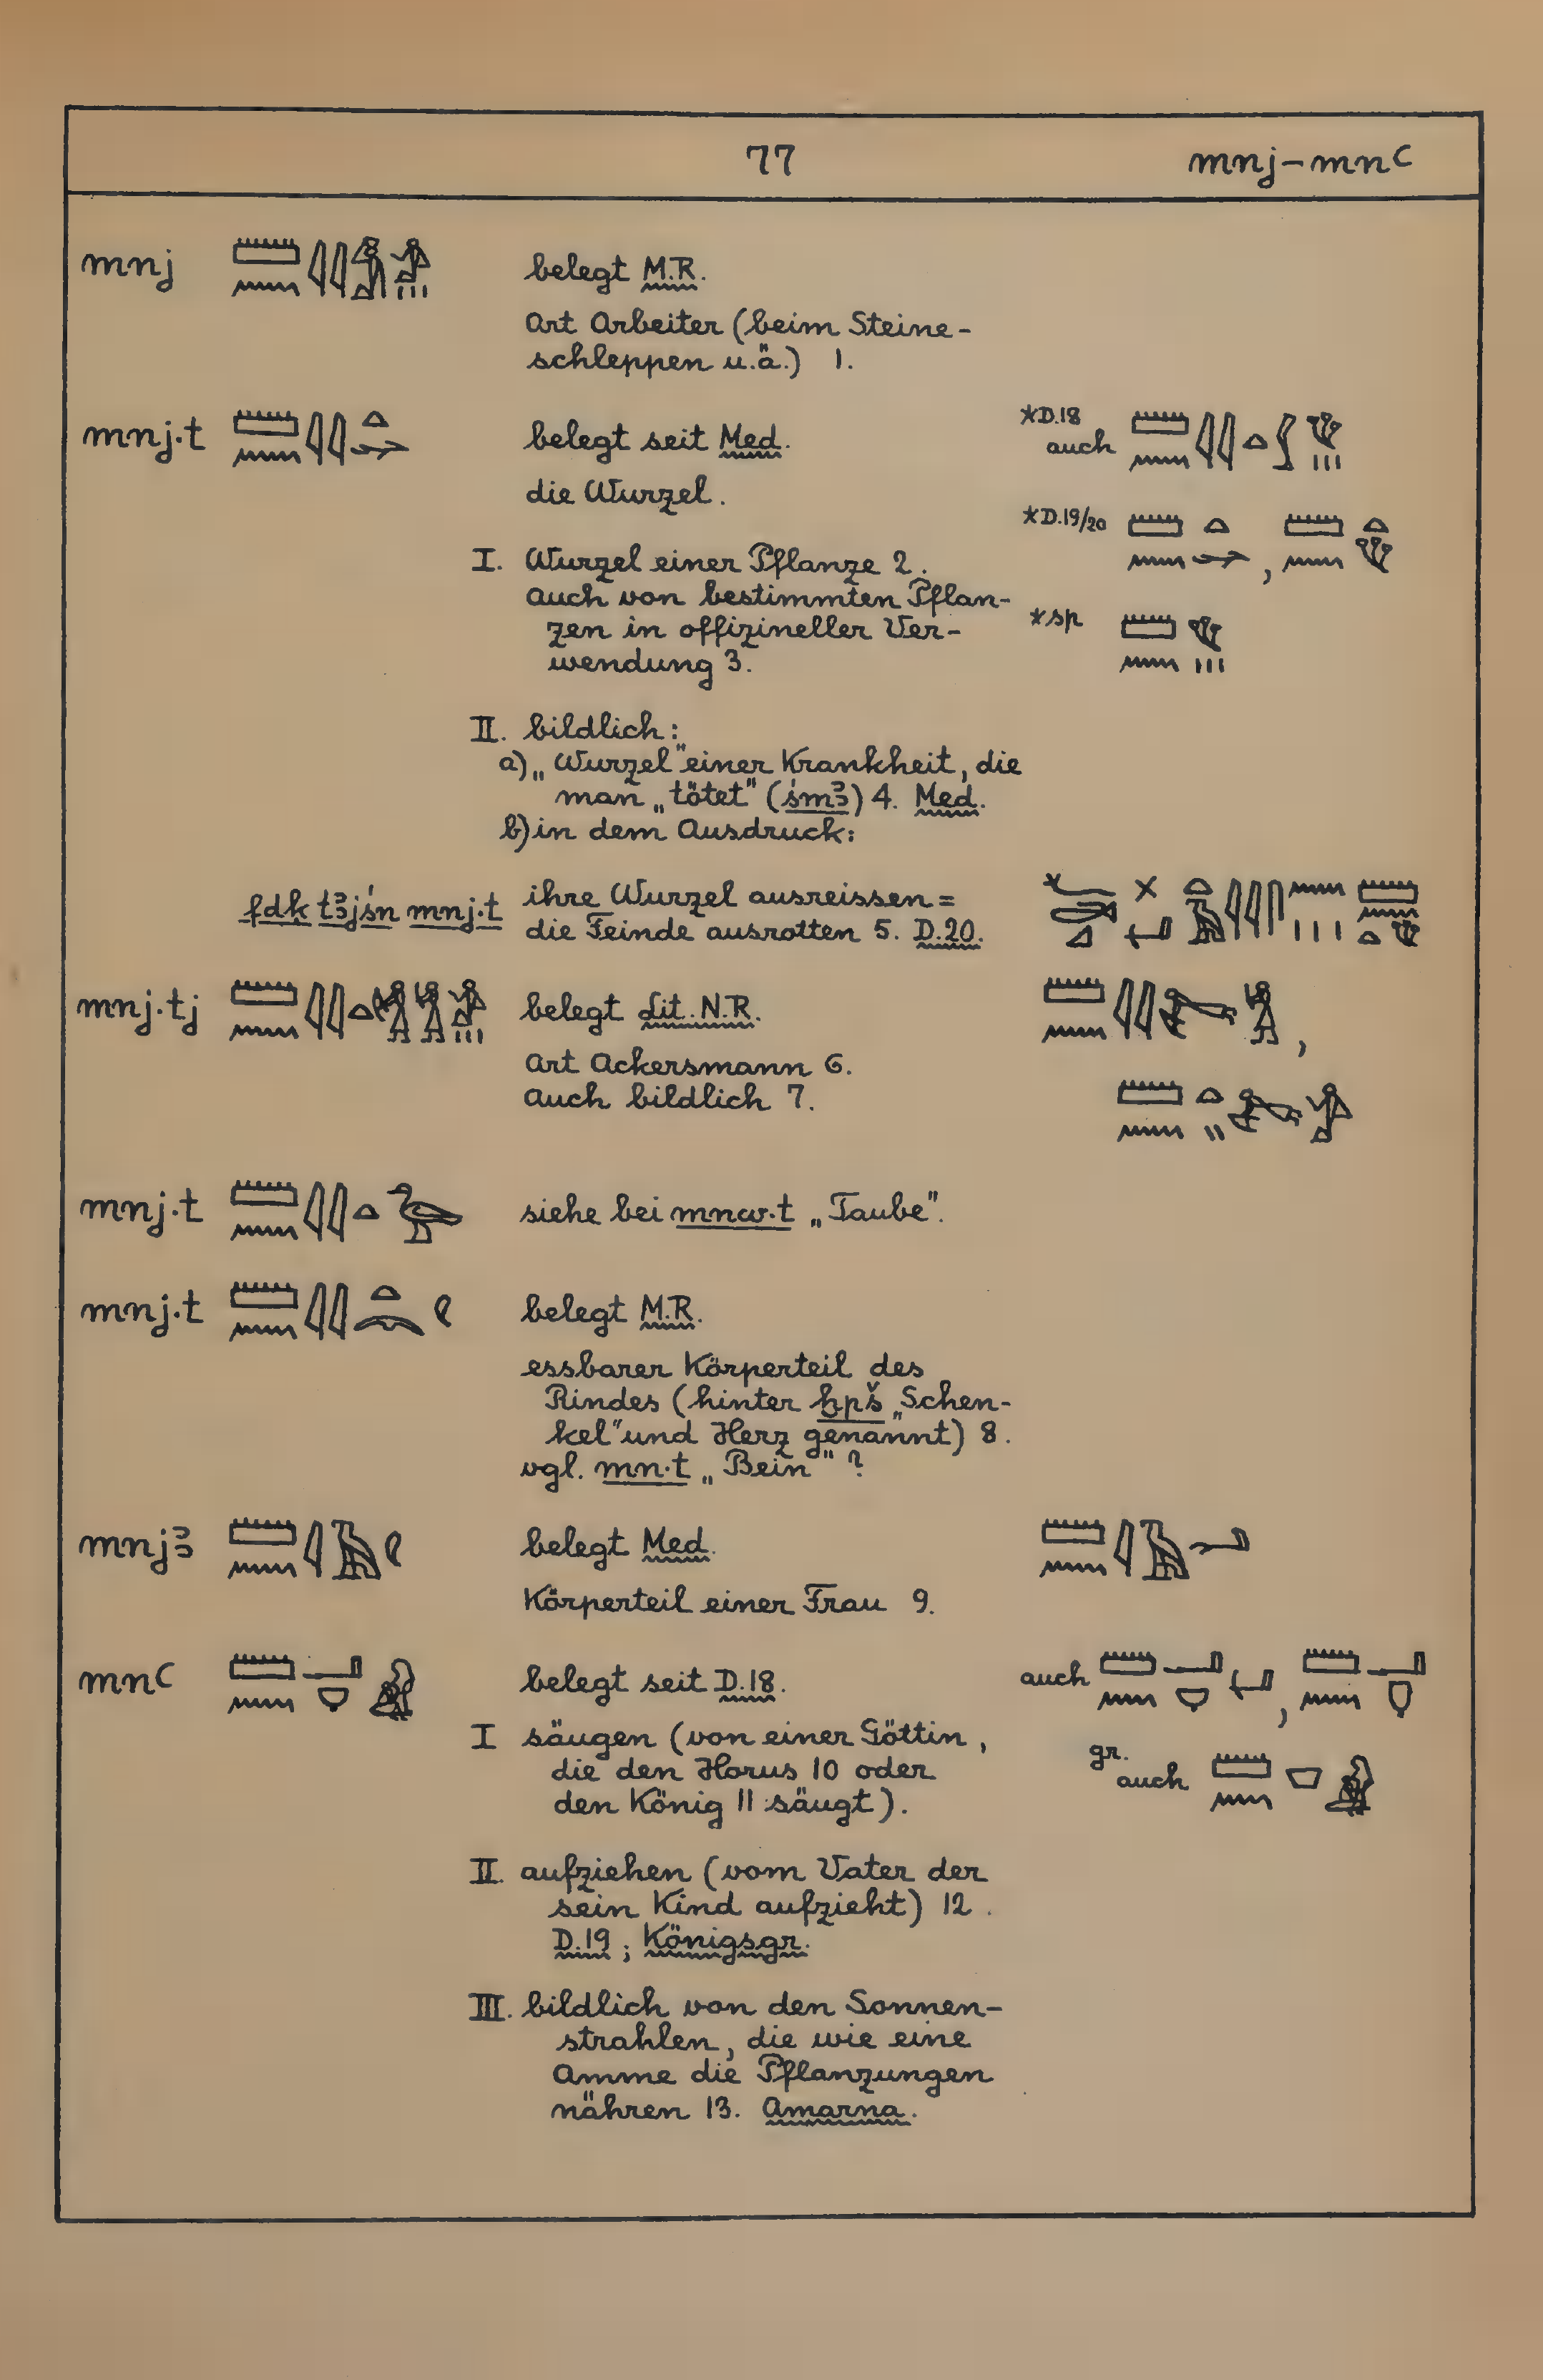 77 mnj–mnꜥ
mnj belegt M.R.
Art Arbeiter (beim Steine-
schleppen u.ä.) 1.
mnj.t belegt seit Med. *D.18
auch
die Wurzel.
*D.19/20 ,
I. Wurzel einer Pflanze 2.
Auch von bestimmten Pflan-
zen in offizineller Ver- *sp
wendung 3.
II. bildlich:
a) „Wurzel" einer Krankheit, die
man „tötet" (śmꜣ) 4. Med.
b) in dem Ausdruck:
fdḳ tꜣjśn mnj.t ihre Wurzel ausreissen =
die Feinde ausrotten 5. D.20.
mnj.tj belegt Lit. N.R. ,
Art Ackersmann 6.
Auch bildlich 7.
mnj.t siehe bei mnw.t „Taube".
mnj.t belegt M.R.
essbarer Körperteil des
Rindes (hinter ḫpš „Schen-
kel" und Herz genannt) 8.
vgl. mn.t „Bein" ?
mnjꜣ belegt Med.
Körperteil einer Frau 9.
mnꜥ belegt seit D.18. auch ,
I säugen (von einer Göttin,
die den Horus 10 oder
den König 11 säugt).
gr.
auch
II. aufziehen (vom Vater der
sein Kind aufzieht) 12.
D.19; Königsgr.
III. bildlich von den Sonnen-
strahlen, die wie eine
Amme die Pflanzungen
nähren 13. Amarna.